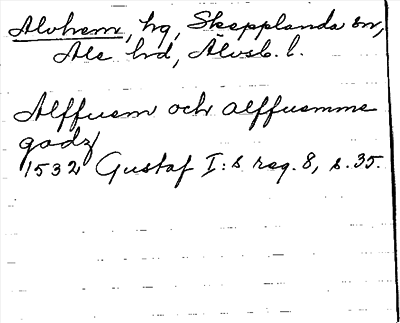 Alvhem, hg, Skepplanda sn,
Ale hd, Älvsb. l.
Alffuem och alffuemme
godz
1532 Gustaf I:s reg. 8, s. 35.